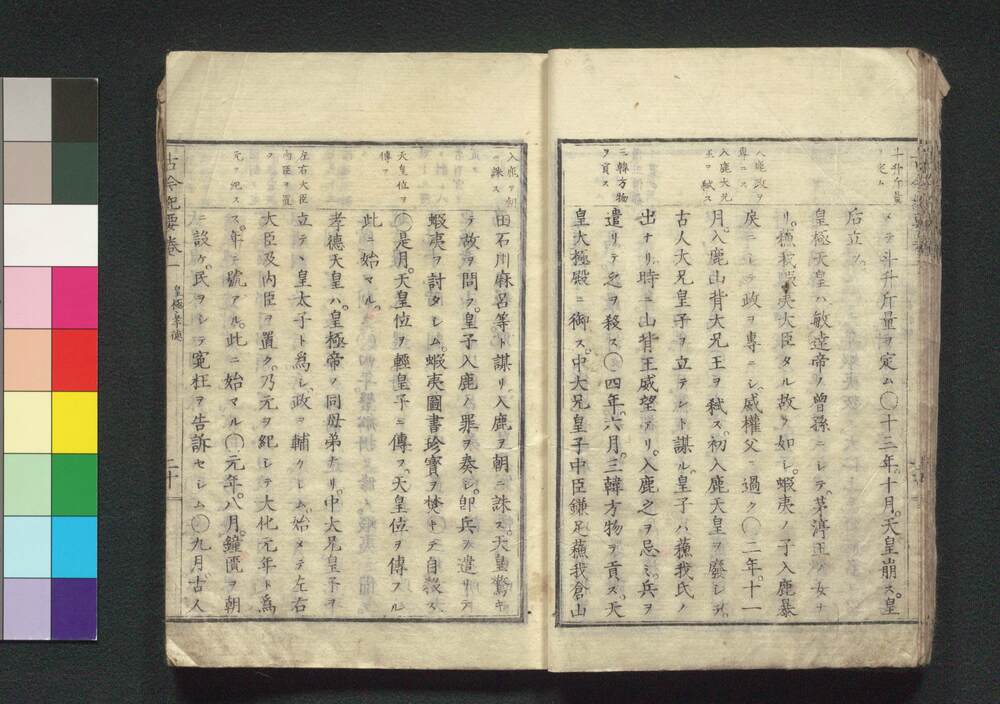 十升斤量
ヲ定ム
メテ斗升斤量ヲ定ム〇十三年十月天皇崩ス皇
后立ツ
皇極天皇ハ敏達帝ノ曽孫ニシテ茅渟王ノ女ナ
リ蘇我蝦夷大臣タル故ノ如シ蝦夷ノ子入鹿暴
入鹿政ヲ
専ニス
戻ニシテ政ヲ専ニシ威權父ニ過ク〇二年十一
入鹿大兄
王ヲ弑ス
月入鹿山背大兄王ヲ弑ス初入鹿天皇ヲ廢シテ
古人大兄皇子ヲ立テント謀ル皇子ハ蘇我氏ノ
出ナリ時ニ山背王威望アリ入鹿之ヲ忌ミ兵ヲ
三韓方物
ヲ貢ス
遣リテ之ヲ殺ス〇四年六月三韓方物ヲ貢ス天
皇大極殿ニ御ス中大兄皇子中臣鎌足蘇我倉山
入鹿ヲ朝
ニ誅ス
田石川麻呂等ト謀リ入鹿ヲ朝ニ誅ス天皇驚キ
テ故ヲ問フ皇子入鹿ノ罪ヲ奏シ卽兵ヲ遣リテ
蝦夷ヲ討タシム蝦夷圖書珍寶ヲ焚キテ自殺ス
天皇位ヲ
傳フ
〇是月天皇位ヲ輕皇子ニ傳フ天皇位ヲ傳フル
此ニ始マル
孝德天皇ハ皇極帝ノ同母弟ナリ中大兄皇子ヲ
左右大臣
内臣ヲ置
立テヽ皇太子ト為シ政ヲ輔ケシム始メテ左右
ク
大臣及内臣ヲ置ク乃元ヲ紀シテ大化元年ト為
元ヲ紀ス
ス年ニ號アル此ニ始マル〇元年八月鐘匱ヲ朝
ニ設ケ民ヲシテ寃枉ヲ告訴セシム〇九月古人
古今紀要巻一
皇極孝德
二十